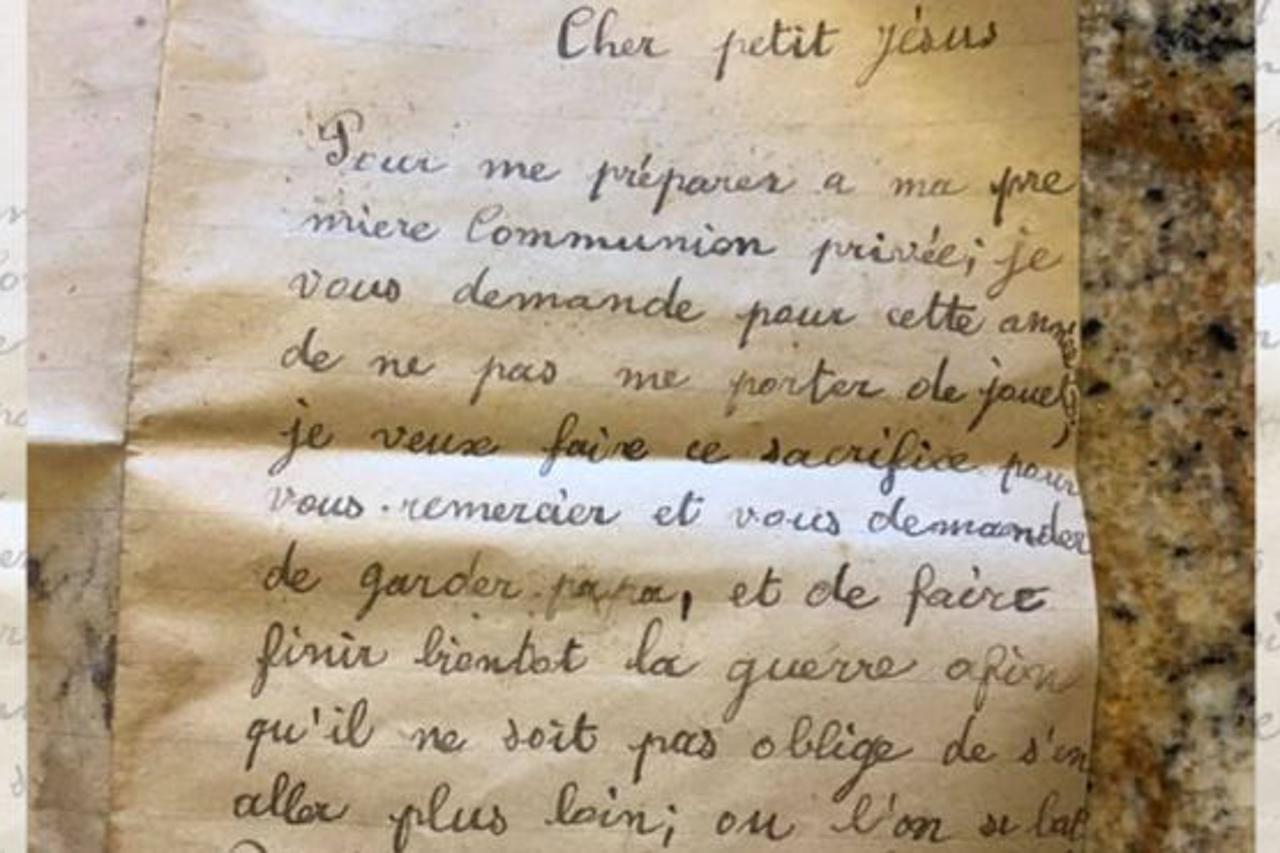 Cher petit jésus
Pour me préparer a ma pre
miere Communion privée; je
vous demande pour cette année
de ne pas me porter de jouets;
je veux faire ce sacrifice pour
vous remercier et vous demander
de garder papa, et de faire
finir bientot la guerre afin
qu'il ne soit pas oblige de s'en
aller plus loin; ou l'on se bat